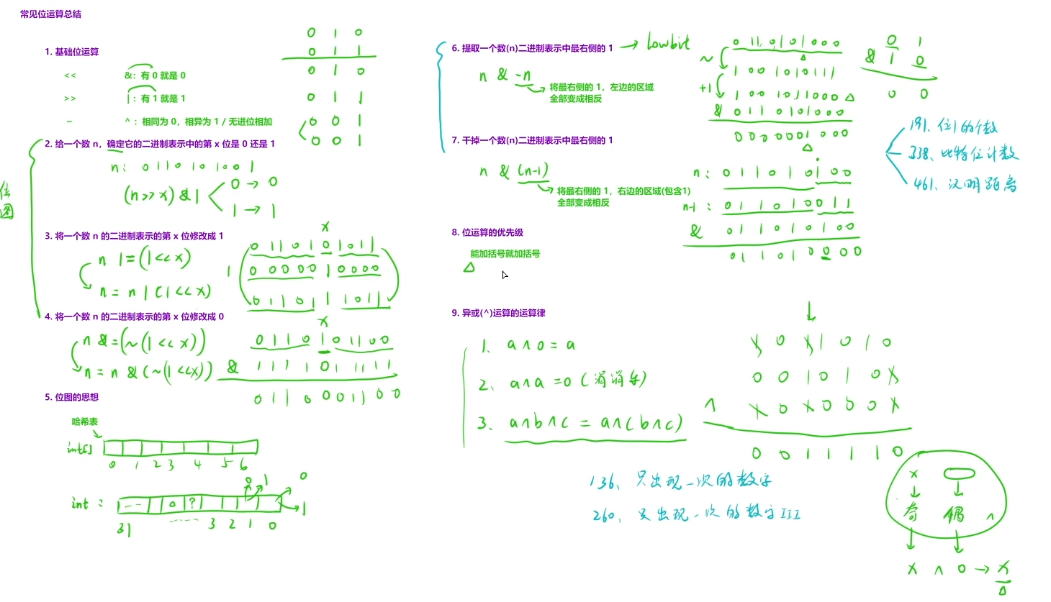 常见位运算总结
1. 基础位运算
<< &: 有 0 就是 0
>> |: 有 1 就是 1
~ ^: 相同为 0，相异为 1 / 无进位相加
0 1 0
0 1 1
0 1 0
0 1 1
0 0 1
0 0 1
2. 给一个数 n，确定它的二进制表示中的第 x 位是 0 还是 1
n: 0 1 1 0 1 0 1 0 0 1
(n >> x) & 1
0 → 0
1 → 1
位图
3. 将一个数 n 的二进制表示的第 x 位修改成 1
n |= (1 << x)
n = n | (1 << x)
x
0 1 1 0 1 0 1 0 1 1
| 0 0 0 0 0 1 0 0 0 0
0 1 1 0 1 1 1 0 1 1
4. 将一个数 n 的二进制表示的第 x 位修改成 0
n &= (~(1 << x))
n = n & (~(1 << x))
x
0 1 1 0 1 0 1 1 0 0
& 1 1 1 1 0 1 1 1 1 1
0 1 1 0 0 0 1 1 0 0
5. 位图的思想
哈希表
int[]
0 1 2 3 4 5 6
int:
0 ?
0 1
0
1
31 3 2 1 0
6. 提取一个数(n)二进制表示中最右侧的 1 → lowbit
n & -n
将最右侧的 1，左边的区域
全部变成相反
0 1 1 0 1 0 1 0 0 0
~ 1 0 0 1 0 1 0 1 1 1
+1 1 0 0 1 0 1 1 0 0 0
& 0 1 1 0 1 0 1 0 0 0
0 0 0 0 0 0 1 0 0 0
0 1
& 1 0
0 0
7. 干掉一个数(n)二进制表示中最右侧的 1
n & (n-1)
将最右侧的 1，右边的区域(包含1)
全部变成相反
n: 0 1 1 0 1 0 1 0 0
n-1: 0 1 1 0 1 0 0 1 1
& 0 1 1 0 1 0 1 0 0
0 1 1 0 1 0 0 0 0
191、位1的个数
338、比特位计数
461、汉明距离
8. 位运算的优先级
能加括号就加括号
9. 异或(^)运算的运算律
1. a ^ 0 = a
2. a ^ a = 0 (消消乐)
3. a ^ b ^ c = a ^ (b ^ c)
1 0 1 1 0 1 0
0 0 1 0 1 0 1
^ 1 0 1 0 0 0 1
0 0 1 1 1 1 0
136、只出现一次的数字
260、只出现一次的数字III
x
奇 偶 ^
x ^ 0 → x